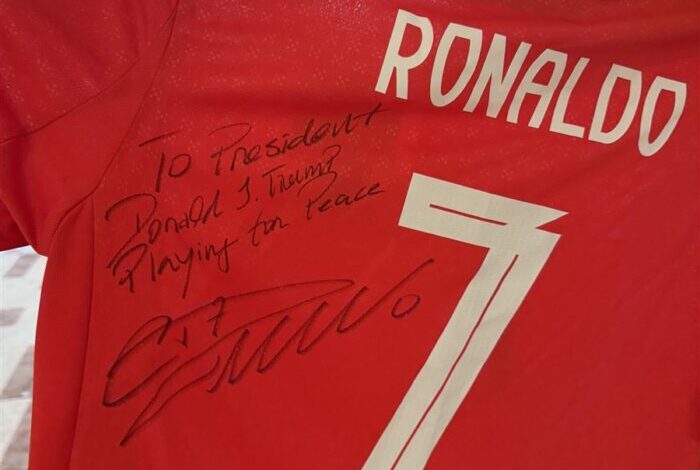 RONALDO
7
To President
Donald J. Trump
Playing for Peace